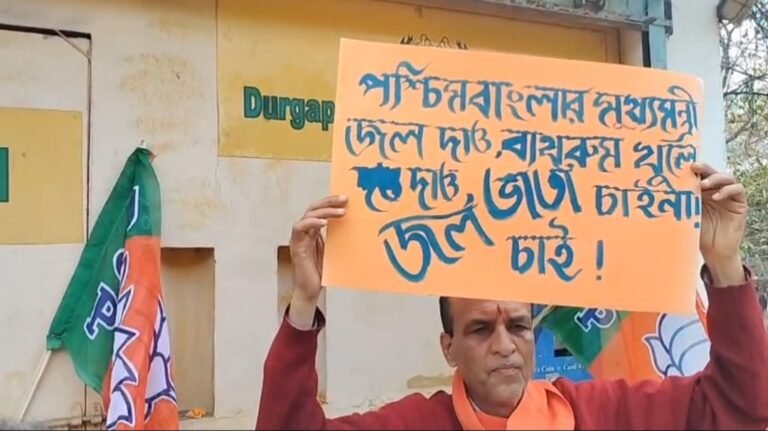 Durgap
পশ্চিমবাংলার মুখ্যমন্ত্রী
জল দাও, বাথরুম খুলে
দাও, ভাতা চাইনা!
জল চাই !